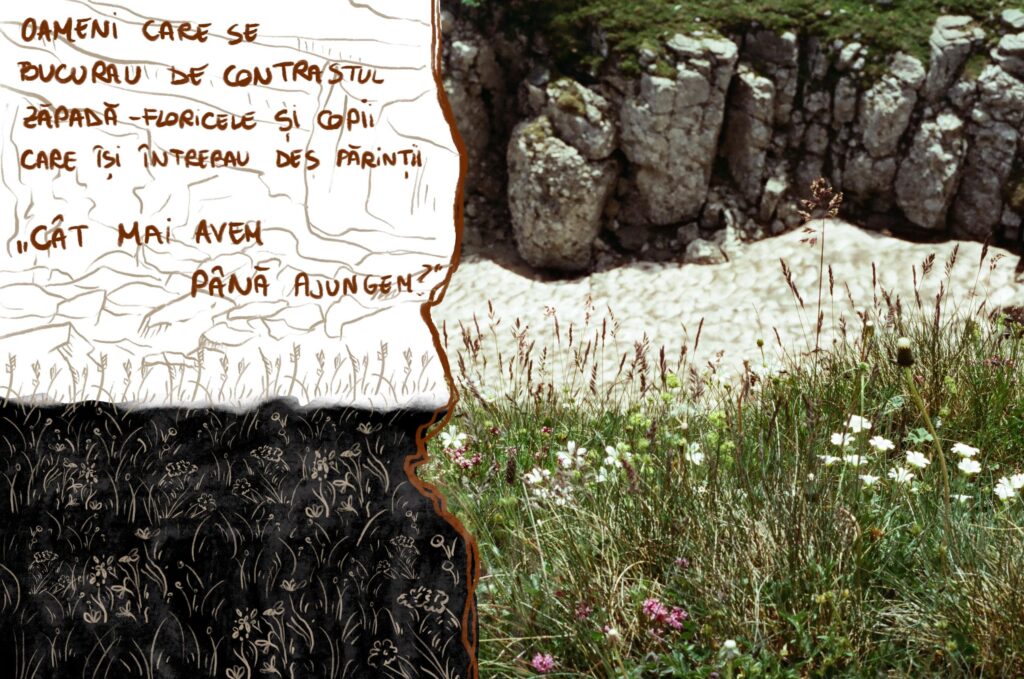 OAMENI CARE SE
BUCURAU DE CONTRASTUL
ZĂPADĂ-FLORICELE ȘI COPII
CARE ÎȘI ÎNTREBAU DES PĂRINȚII
„CÂT MAI AVEM
PÂNĂ AJUNGEM?"